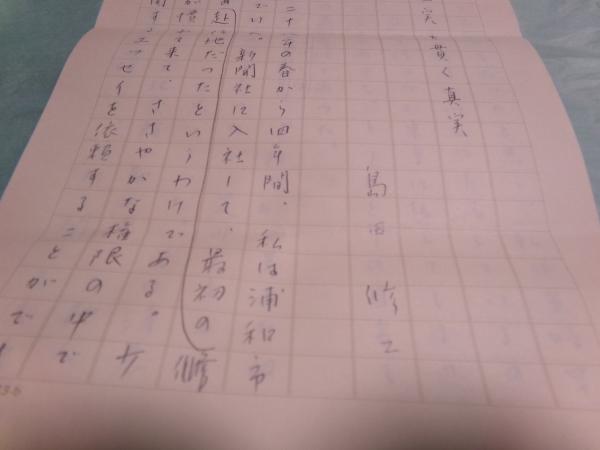 実を貫く真実
島田 修二
年の春から四年間、私は浦和市
新聞社に入社して、最初の
赴任地だったというわけである。
慣れて来て、ささやかな権限の中で
関するエッセイを依頼することがで